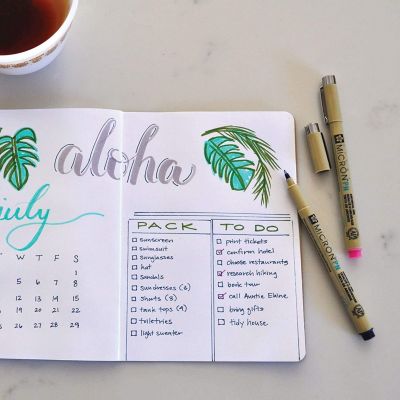 aloha
july
W T F S
1
5 6 7 8
12 13 14 15
19 20 21 22
26 27 28 29
PACK
sunscreen
swimsuit
sunglasses
hat
sandals
sundresses (6)
shorts (3)
tank tops (4)
toiletries
light sweater
TO DO
print tickets
confirm hotel
choose restaurants
research hiking
book tour
call Auntie Elaine
bring gifts
tidy house
MICRON PN
MICRON PN